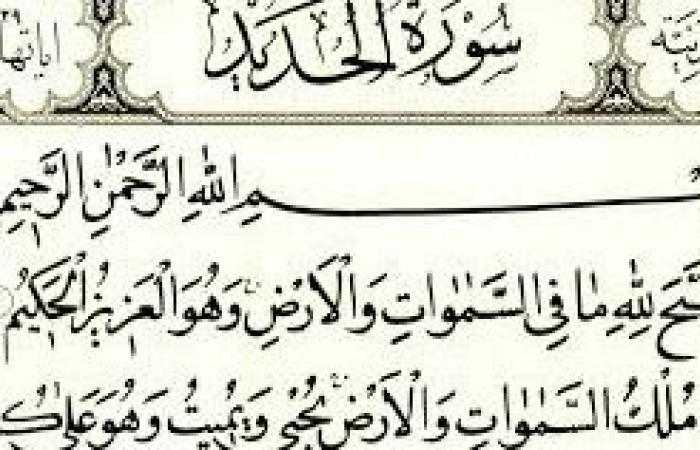 سُورَةُ الْحَدِيدِ
ـمِ اللّٰهِ الرَّحْمٰنِ الرَّحِيمِ
ـبَّحَ لِلّٰهِ مَا فِي السَّمٰوَاتِ وَالْاَرْضِ وَهُوَ الْعَزِيزُ الْحَكِيمُ
مُلْكُ السَّمٰوَاتِ وَالْاَرْضِ يُحْيِي وَيُمِيتُ وَهُوَ عَلٰى